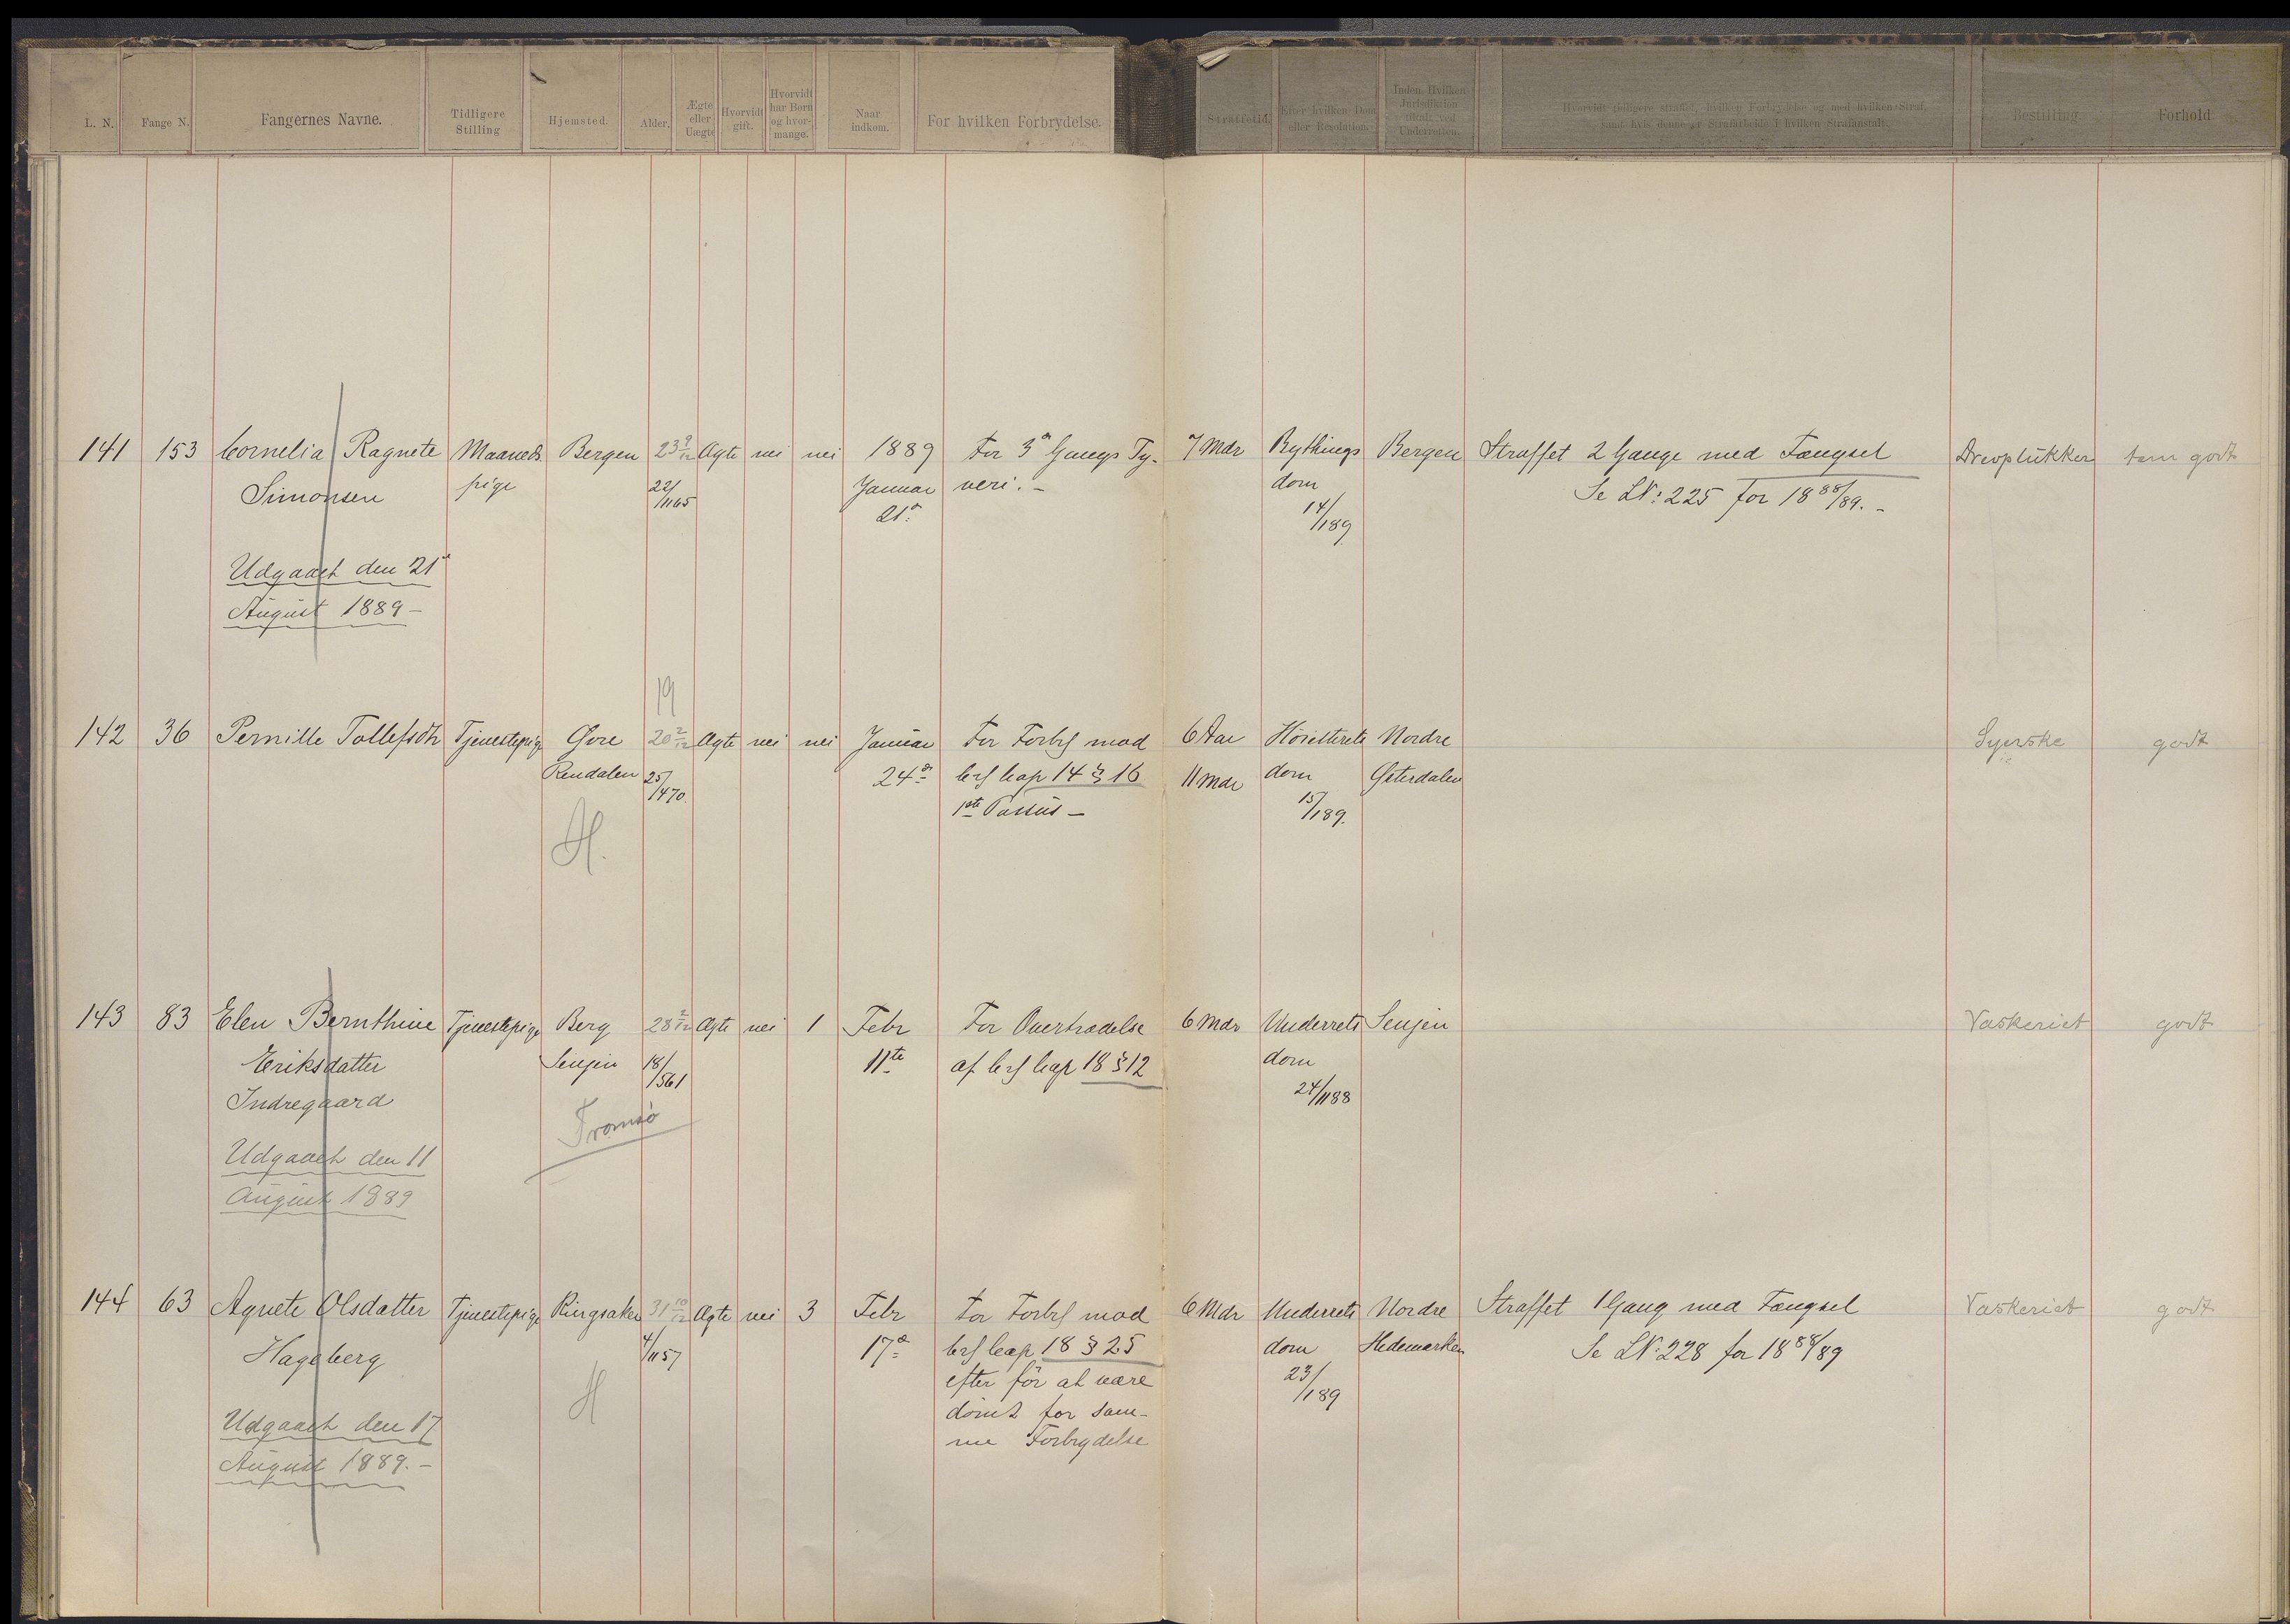 L. N.
Fange N.
Fangernes Navne.
Tidligere
Stilling
Hjemsted.
Alder.
Ægte
eller
Uægte
Hvorvidt
gift.
Hvorvidt
har Børn
og hvor-
mange.
Naar
indkom.
For hvilken Forbrydelse.
Straffetid.
Efter hvilken Dom
eller Resolution.
Inden Hvilken
Jurisdiktion
tiltalt ved
Underretten.
Hvorvidt tidligere straffet, hvilken Forbrydelse og med hvilken Straf,
samt hvis denne er Strafarbeide i hvilken Strafanstalt.
Bestilling
Forhold
141 153 Cornelia Ragnete Maaneds Bergen 23 9/12 Ægte nei nei 1889 For 3die Gangs Ty- 7 Mdr Bythings Bergen Straffet 2 Gange med Fængsel Drevplukker tem godt
Simonsen pige 22/1165 Januar veri. – dom Se LN: 225 for 18 88/89. –
21de 14/189
Udgaaet den 21de
August 1889 –
19
142 36 Pernille Tollefsdtr Tjenestepige Øvre 20 2/12 Ægte nei nei Januar For Forbr mod 6 Aar Høiesterets Nordre Syerske godt
Rendalen 25/470 24de Crl Cap 14 § 16 11 Mdr dom Østerdalen
1ste Passus – 15/189.
H.
143 83 Elen Bernthine Tjenestepige Berg 28 2/12 Ægte nei 1 Febr For Overtrædelse 6 Mdr Underrets Senjen Vaskeriet godt
Eriksdatter Senjen 18/561 11te af Crl Cap 18 § 12 dom
Indregaard 24/1188
Tromsø
Udgaaet den 11
August 1889
144 63 Agnete Olsdatter Tjenestepige Ringsaker 31 10/12 Ægte nei 3 Febr For Forbr mod 6 Mdr Underrets Nordre Straffet 1 Gang med Fængsel Vaskeriet godt
Hageberg 4/1157 17de Crl Cap 18 § 25 dom Hedemarken Se LN: 228 for 18 88/89
efter før at være 23/189
H
dømt for sam-
me Forbrydelse
Udgaaet den 17
August 1889. –